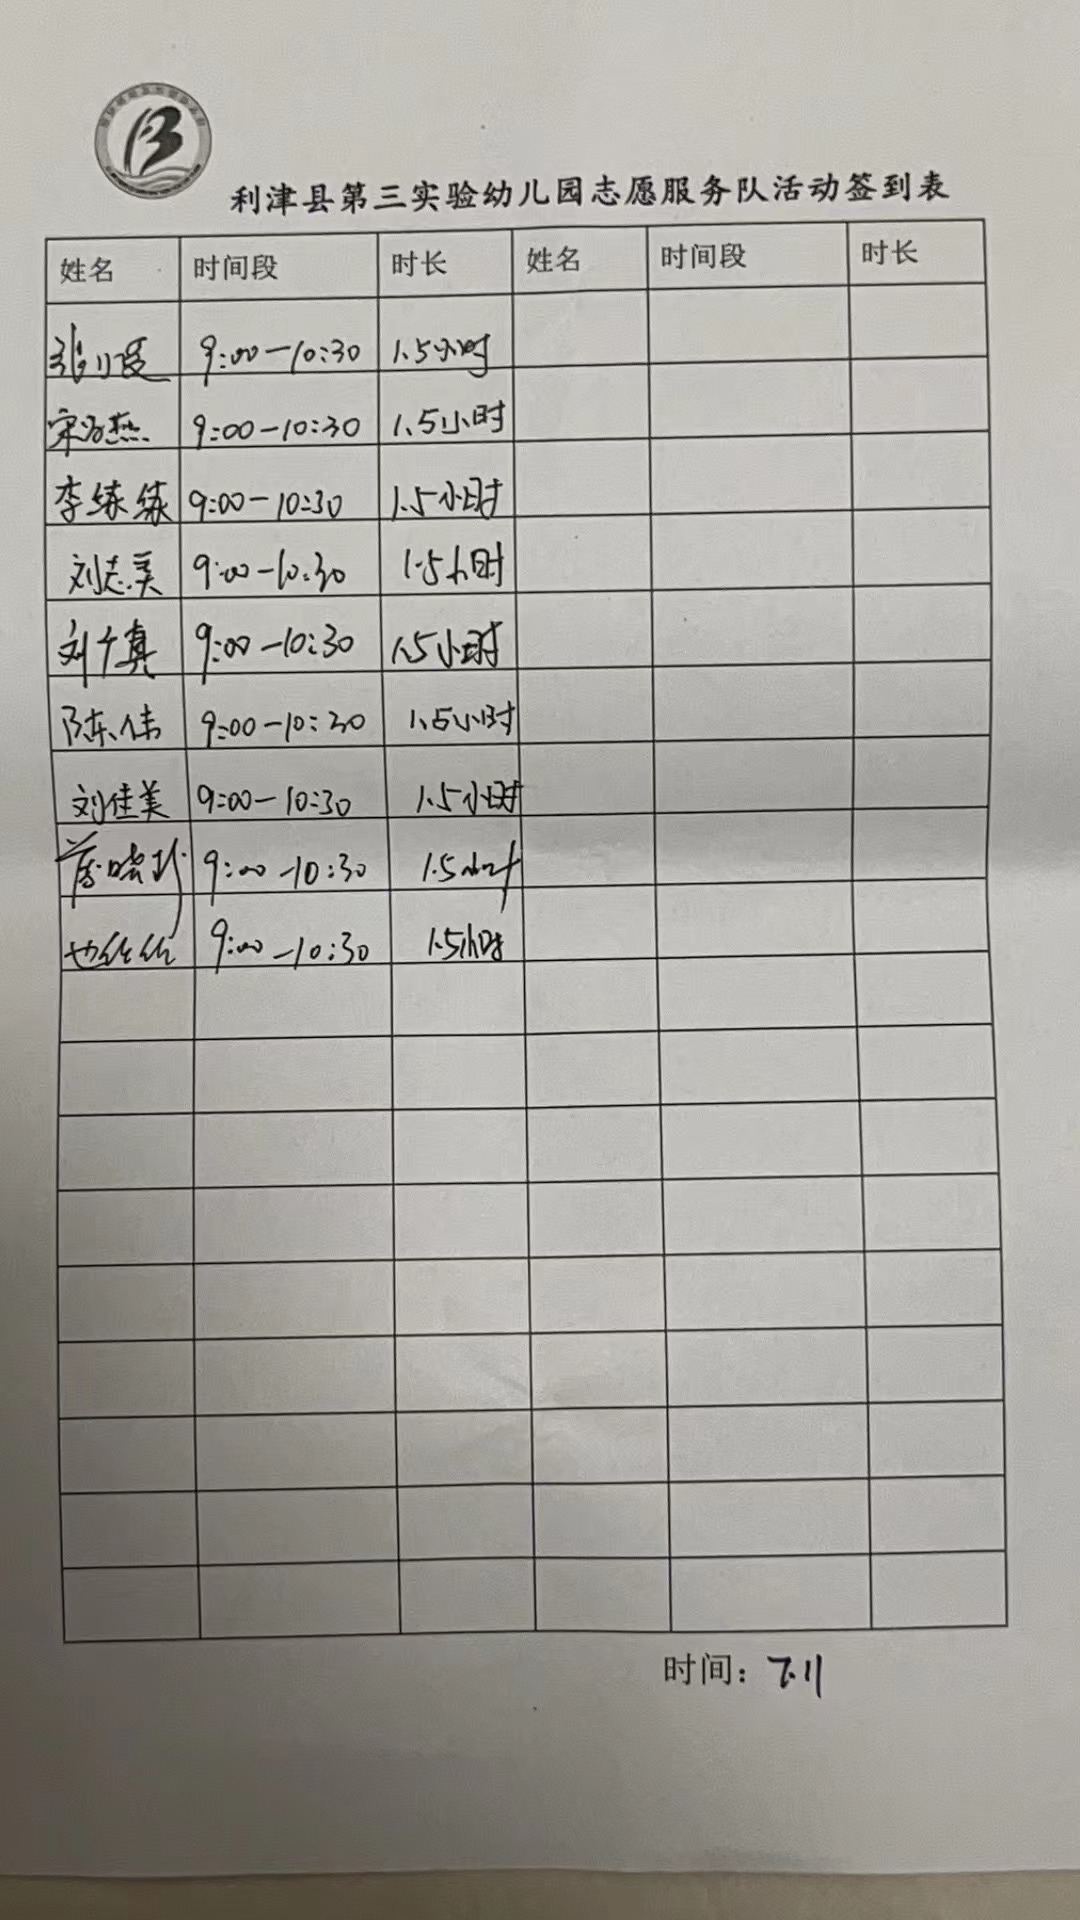 利津县第三实验幼儿园志愿服务队活动签到表
姓名 时间段 时长 姓名 时间段 时长
9:00-10:30 1.5小时
9:00-10:30 1.5小时
李练练 9:00-10:30 1.5小时
刘志美 9:00-10:30 1.5小时
刘千真 9:00-10:30 1.5小时
陈伟 9:00-10:30 1.5小时
刘佳美 9:00-10:30 1.5小时
9:00-10:30 1.5小时
9:00-10:30 1.5小时
时间：7.11